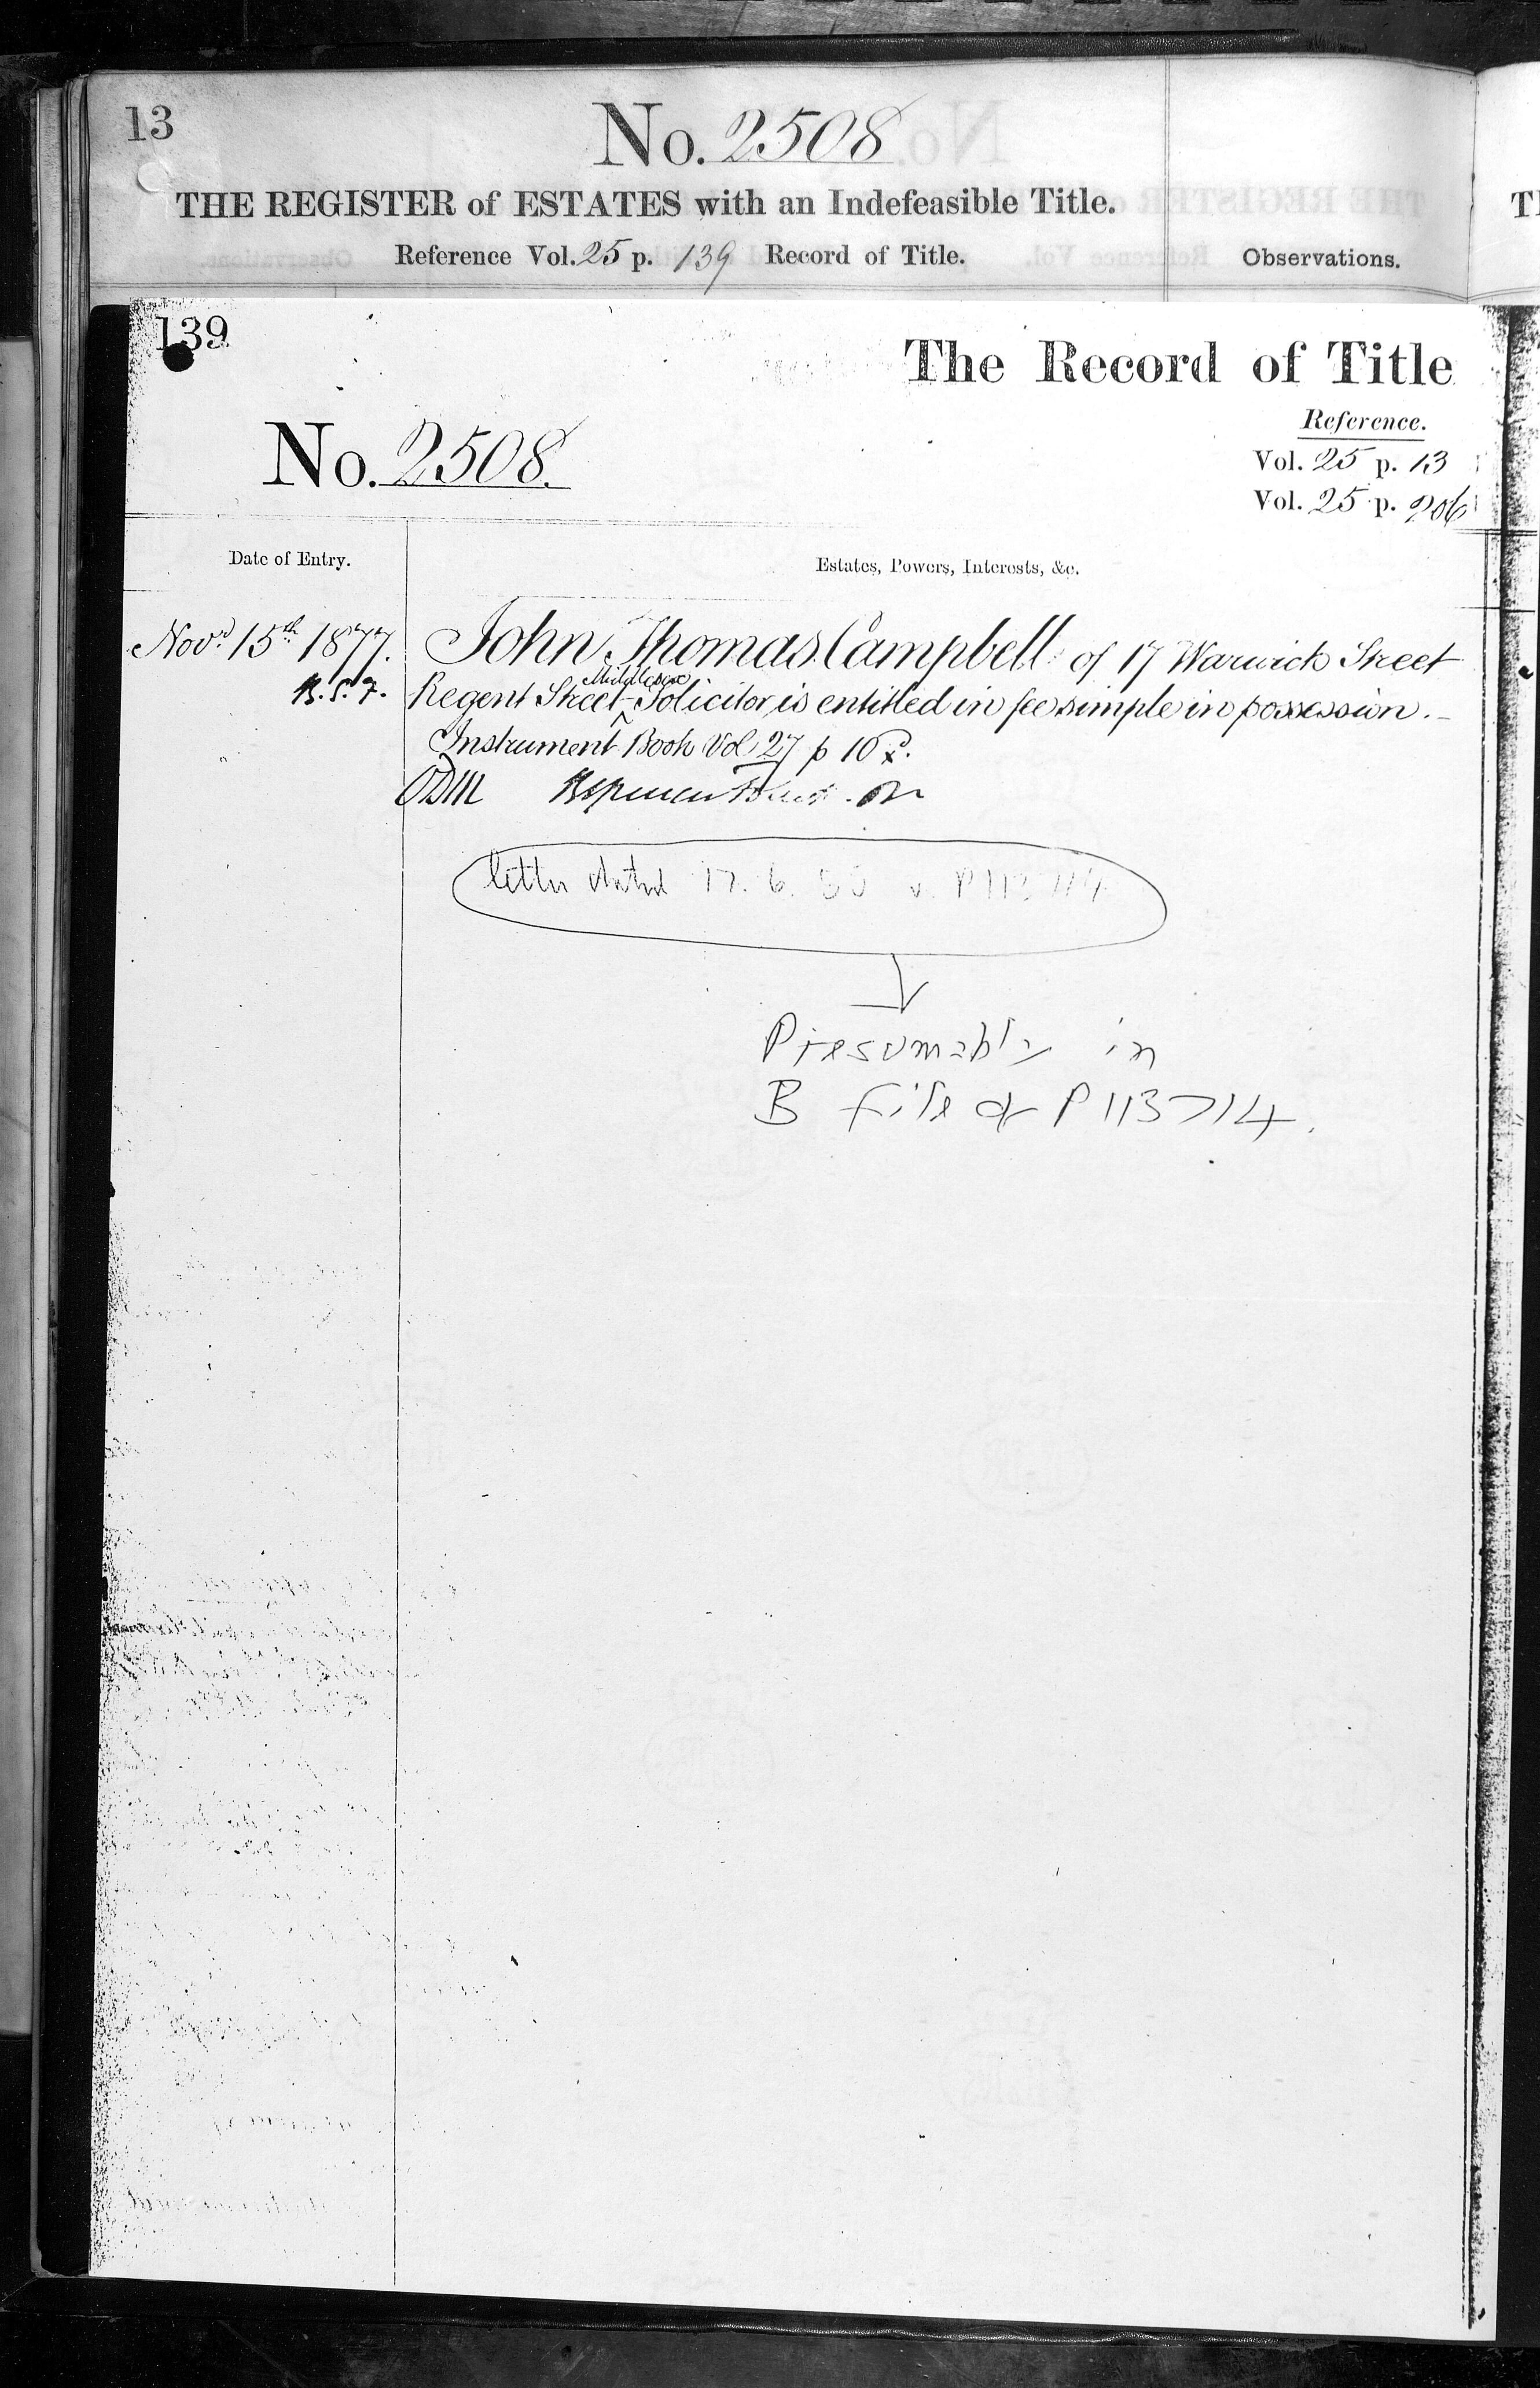 13
No. 2508
THE REGISTER of ESTATES with an Indefeasible Title.
Reference Vol. 25 p. 139 Record of Title.
Observations.
139
The Record of Title
Reference.
No. 2508.
Vol. 25 p. 13
Vol. 25 p. 206
Date of Entry.
Estates, Powers, Interests, &c.
Novr. 15th 1877.
John Thomas Campbell of 17 Warwick Street
Middlesex
Regent Street Solicitor is entitled in fee simple in possession.
Instrument Book Vol. 27 p 10
letter dated 17. 6.
Presumably in
B file of P113714.